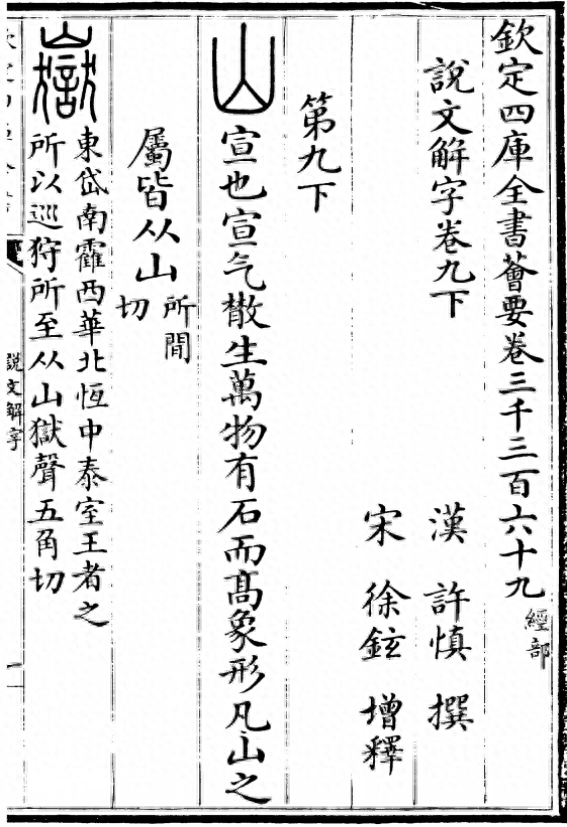 欽定四庫全書薈要卷三千三百六十九 經部
說文解字卷九下
漢 許慎 撰
宋 徐鉉 增釋
第九下
山 宣也宣气㪚生萬物有石而髙象形凡山之
屬皆从山 所閒切
嶽 東岱南靃西華北恆中泰室王者之
所以巡狩所至从山獄聲五角切
說文解字